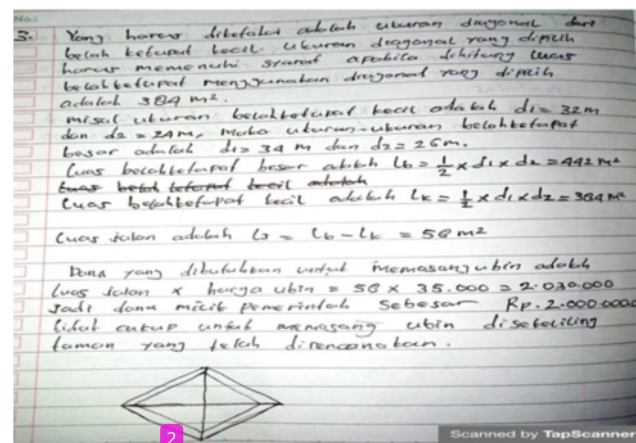 No.:
3. Yang harus diketahui adalah ukuran diagonal dari
belah ketupat kecil. Ukuran diagonal yang dipilih
harus memenuhi syarat apabila dihitung luas
belahketupat menggunakan diagonal yang dipilih
adalah 384 m².
misal ukuran belahketupat kecil adalah d1 = 32m
dan d2 = 24m, maka ukuran-ukuran belahketupat
besar adalah d1 = 34 m dan d2 = 26m.
Luas belahketupat besar adalah Lb = 1/2 x d1 x d2 = 442 m²
Luas belah ketupat kecil adalah
Luas belahketupat kecil adalah Lk = 1/2 x d1 x d2 = 384 m²
Luas jalan adalah LJ = Lb - Lk = 58 m²
Dana yang dibutuhkan untuk memasang ubin adalah
luas jalan x harga ubin = 58 x 35.000 = 2.030.000
Jadi dana milik pemerintah sebesar Rp. 2.000.000
tidak cukup untuk memasang ubin disekeliling
taman yang telah direncanakan.
2
Scanned by TapScanner